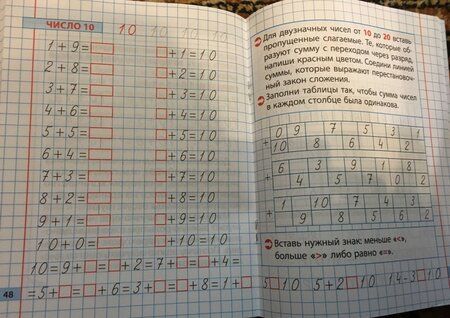 ЧИСЛО 10 10 10
1+9=□ □+1=10
2+8=□ □+2=10
3+7=□ □+3=10
4+6=□ □+4=10
5+5=□ □+5=10
6+4=□ □+6=10
7+3=□ □+7=10
8+2=□ □+8=10
9+1=□ □+9=10
10+0=□ □+10=10
10=9+□=□+2=7+□=□+4=
=5+□=□+6=3+□=□+8=1+□
48
Для двузначных чисел от 10 до 20 вставь
пропущенные слагаемые. Те, которые об-
разуют сумму с переходом через разряд,
напиши красным цветом. Соедини линией
суммы, которые выражают перестановоч-
ный закон сложения.
Заполни таблицы так, чтобы сумма чисел
в каждом столбце была одинакова.
+ 0 9 7 5 3 1
10 8 6 4 2
+ 6 3 9 1 8
4 5 7 0 2
+ 1 10 7 4 3
9 8 5 6 2
Вставь нужный знак: меньше «<»,
больше «>» либо равно «=».
5□10 5+2□10 14-3□10